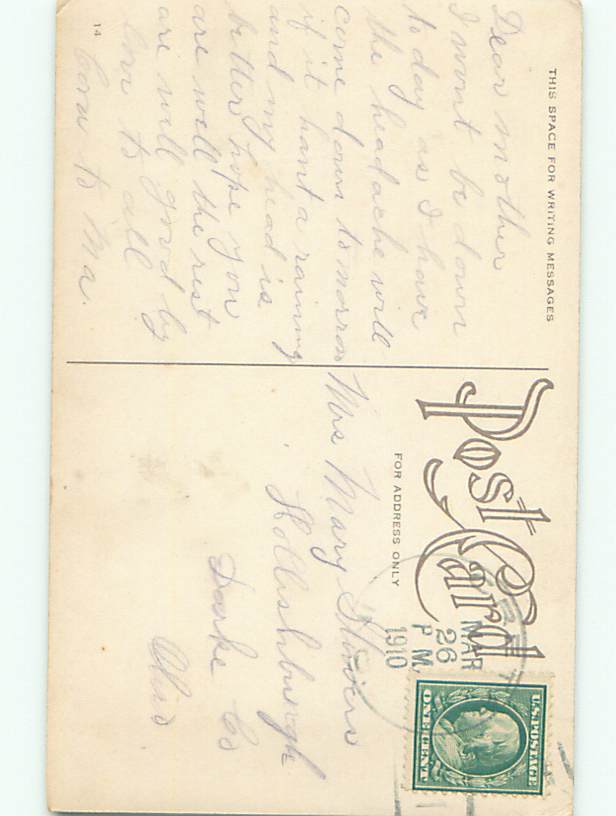 THIS SPACE FOR WRITING MESSAGES
Dear mother
I wont be down
to day as I have
the headache will
come down to morrow
if it hant a raining
and my head is
better hope you
are well the rest
are well good by
love to all
Cora to Ma.
14
Post Card
FOR ADDRESS ONLY
MAR
26
P M.
1910
U.S. POSTAGE
ONE CENT
Mrs Mary
Hollinshburgh
Darke Co
Ohio